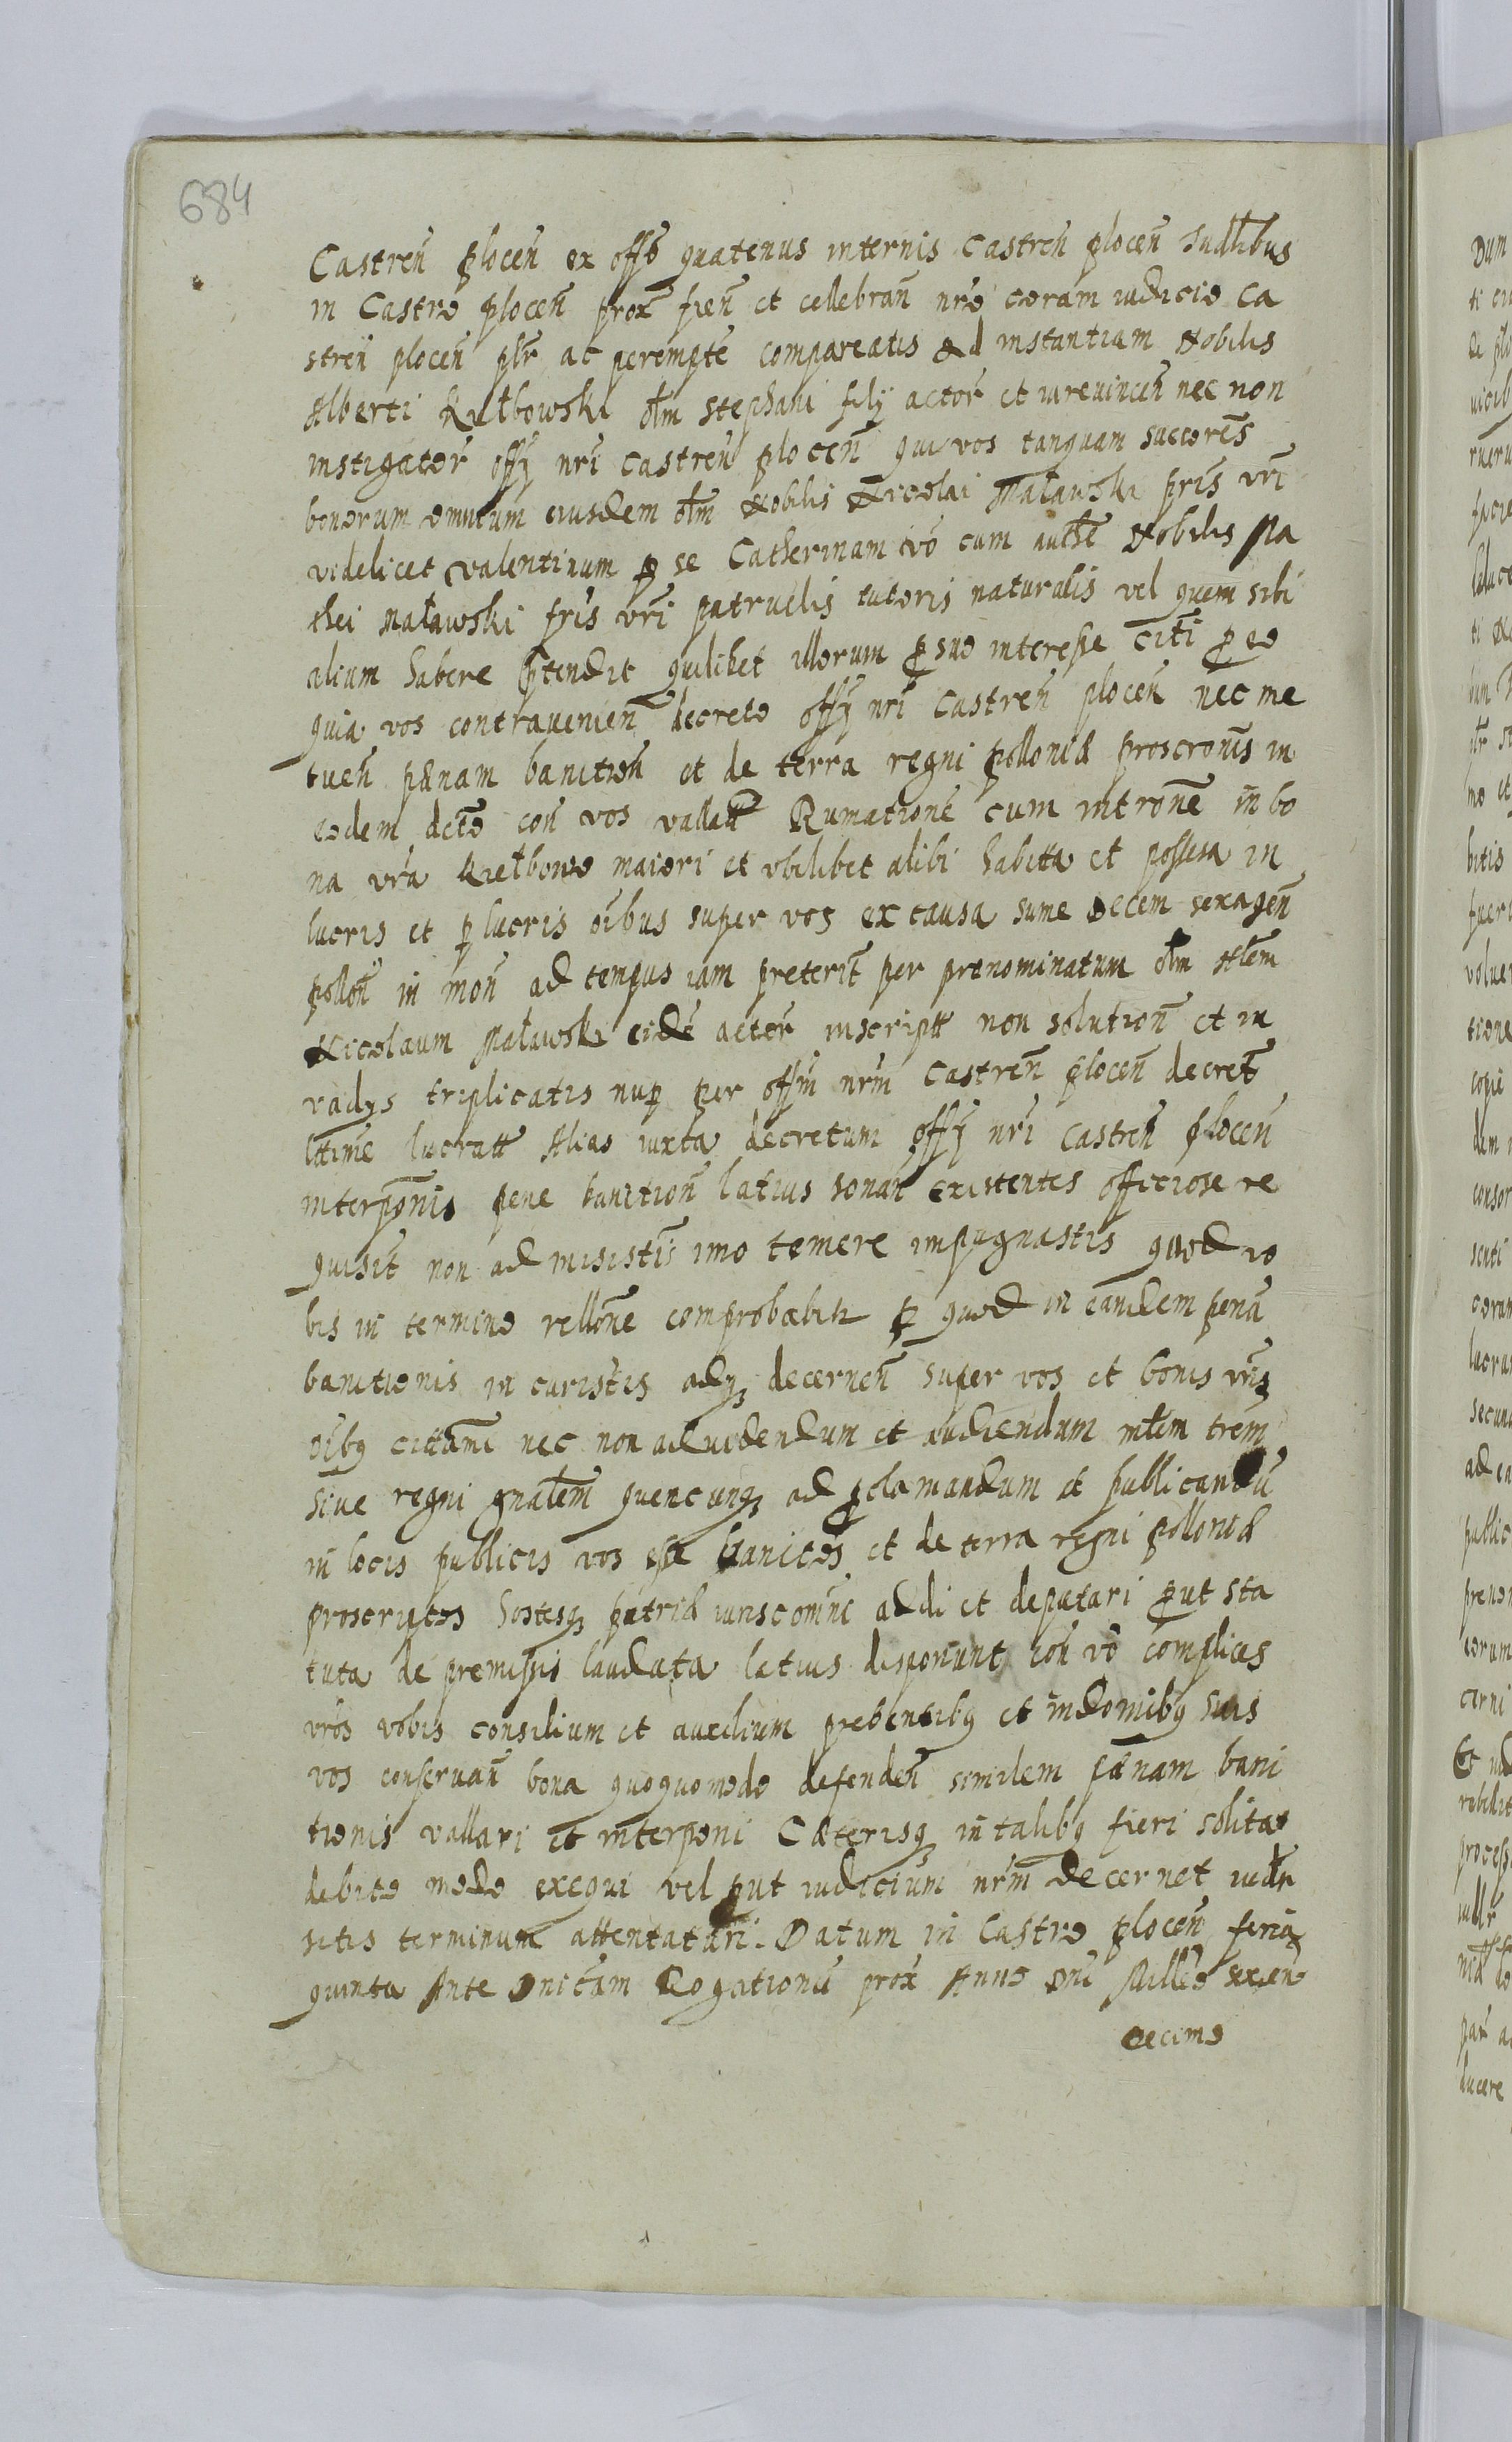 684
Castren̄ plocen̄ ex offo quatenus in ternis Castren̄ plocen̄ Iudlibus
in Castro plocen̄ prox̄ fien̄ et cellebran̄ nr̄o coram iudicio Ca
stren̄ plocen̄ plr̄ ac perempte compareatis Ad instantiam Nobilis
Alberti Kiełbowski ol̄m Stephani filÿ actor̄ et iurevincen̄ nec non
instigator̄ offÿ nr̄i Castren̄ plocen̄ qui vos tanquam succores̄
bonorum omnium eiusdem ol̄m Nobilis Nicolai Maławski pr̄is vr̄i
videlicet Valentinum p se Catherinam vō cum auth̄e Nobilis Ma
thei Maławski fr̄is vr̄i patruelis tutoris naturalis vel quem sibi
alium habere p̄tendit quilibet illorum p suo interesse citī p eo
quia vos contravenien̄ decreto offÿ nr̄i Castren̄ plocen̄ nec me
tuen̄ pænam banition̄ et de terra regni polloniæ proscronis̄ in
eodem dct̄o con̄ vos vallatt Rumationē cum introne̅ in bo
na vr̄a Kiełbowo maiori et ubilibet alibi habitta et possessa in
lucris et p lucris oībus super vos ex causa sume decem sexagen̄
pollon̄ in mon̄ ad tempus iam preterit̄ per prenominatum ol̄m Nlem
Nicolaum Maławski eidē actor̄ inscriptt non solution̄ et in
vadÿs triplicatis nup per offm̄ nr̄m Castren̄ plocen̄ decret̄
lttime lucratt Alias iuxta decretum offÿ nr̄i Castren̄ plocen̄
interponis̄ pene banition̄ latius sonan̄ existentes officiose re
quisit̄ non admisistis imo temere impugnastis quod vo
bis in termino rellone̅ comprobabitr p quod in eandem penā
banitionis incuristis adq decernen̄ super vos et bonis vr̄is
oībq cittami nec non ad videndum et audiendum mlem trem̄
sive regni gnalem̄ quencunq ad pclamandum et publicandū
in locis publicis vos esse banitos et de terra regni polloniæ
proscriptos hostesq patriæ iuriscomni addi et deputari put sta
tuta de premissis laudata latius disponunt con̄ vō complices
vr̄os vobis consilium et auxilium prebentibq et in domibq suis
vos conservan̄ bona quoquomodo defenden̄ similem pænam bani
tionis vallari et interponi Cæterisq in talibq fieri solitas
debito modo exequi vel put iudicium nr̄m decernet iudr
sitis terminum attentaturi. Datum in Castro plocen̄ feria
quinta Ante Dnicam Rogationū prox̄ Anno Dni Millēo sexcen
decimo